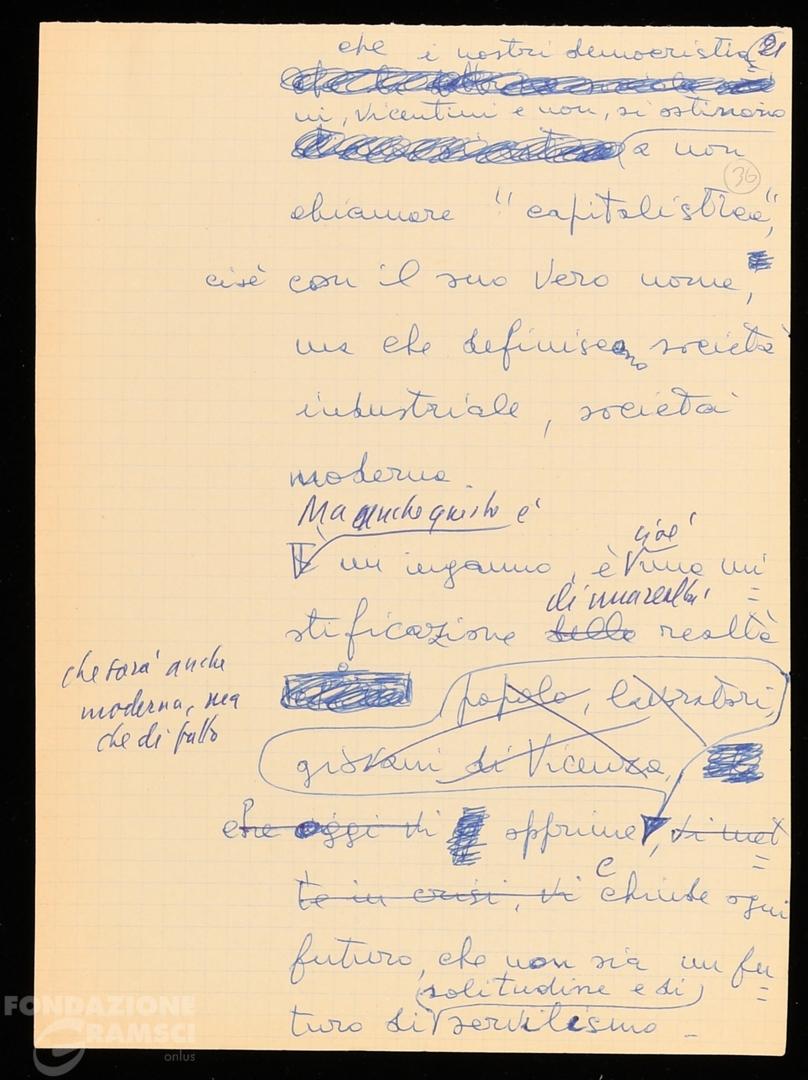 che i nostri democristia= 21
ni, vicentini e non, si ostinano
a non
36
chiamare "capitalistica",
cioè con il suo vero nome,
ma che definiscono società
industriale, società
moderna.
Ma anche questo è
È un inganno, è cioè una mi=
di una realtà
stificazione della realtà
che sarà anche
moderna, ma
che di fatto
popolo, lavoratori,
giovani di Vicenza,
che oggi vi opprime, vi met=
te in crisi, vi chiude ogni
futuro, che non sia un fu=
solitudine e di
turo di servilismo –
FONDAZIONE
GRAMSCI
onlus